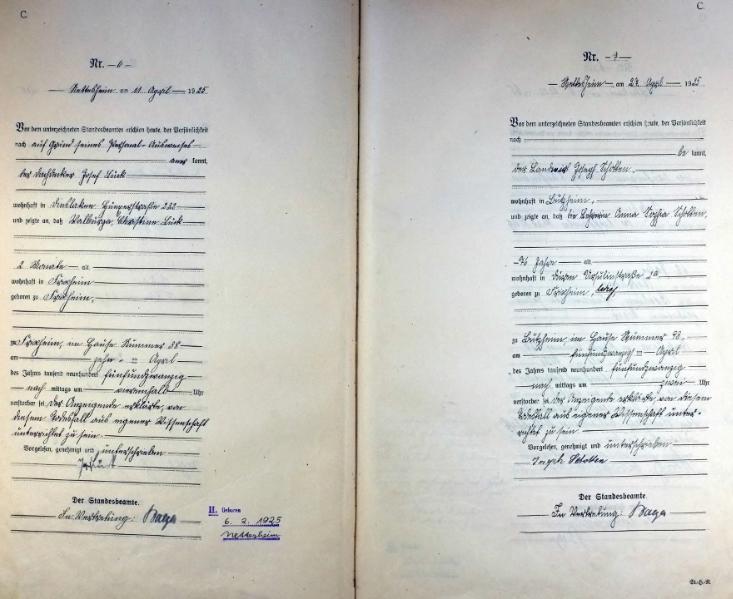 C.
Nr. -6-
Nettesheim am 11 April 1925
Vor dem unterzeichneten Standesbeamten erschien heute, der Persönlichkeit
nach auf Grund seines Personal-Ausweises
aner kannt,
der Dachdecker Josef Lück
wohnhaft in Dinslaken
und zeigte an, daß Walburga Christine Lück
2 Monate alt
wohnhaft in Frixheim
geboren zu Frixheim,
zu Frixheim, im Hause Nummer 38
am zehn ten April
des Jahres tausend neunhundert fünfundzwanzig
nach mittags um Uhr
verstorben sei. Der Anzeigende erklärte, von
diesem Todesfall aus eigener Wissenschaft
unterrichtet zu sein.
Vorgelesen, genehmigt und unterschrieben
Der Standesbeamte.
In Vertretung:
II. Geboren
6. 2. 1925
Nettesheim
C.
Nr.
Nettesheim am 27 April 1925
Vor dem unterzeichneten Standesbeamten erschien heute, der Persönlichkeit
nach
be kannt,
der Landwirt Joseph Schotten,
wohnhaft in
und zeigte an, daß die Anna Sophia Schotten,
76 Jahre alt
wohnhaft in Düren
geboren zu Frixheim, ledig,
zu im Hause Nummer
am fünfundzwanzig ten April
des Jahres tausend neunhundert fünfundzwanzig
nach mittags um zwei Uhr
verstorben sei. Der Anzeigende erklärte, von diesem
Todesfall aus eigener Wissenschaft unter-
richtet zu sein
Vorgelesen, genehmigt und unterschrieben
Joseph Schotten
Der Standesbeamte.
In Vertretung: